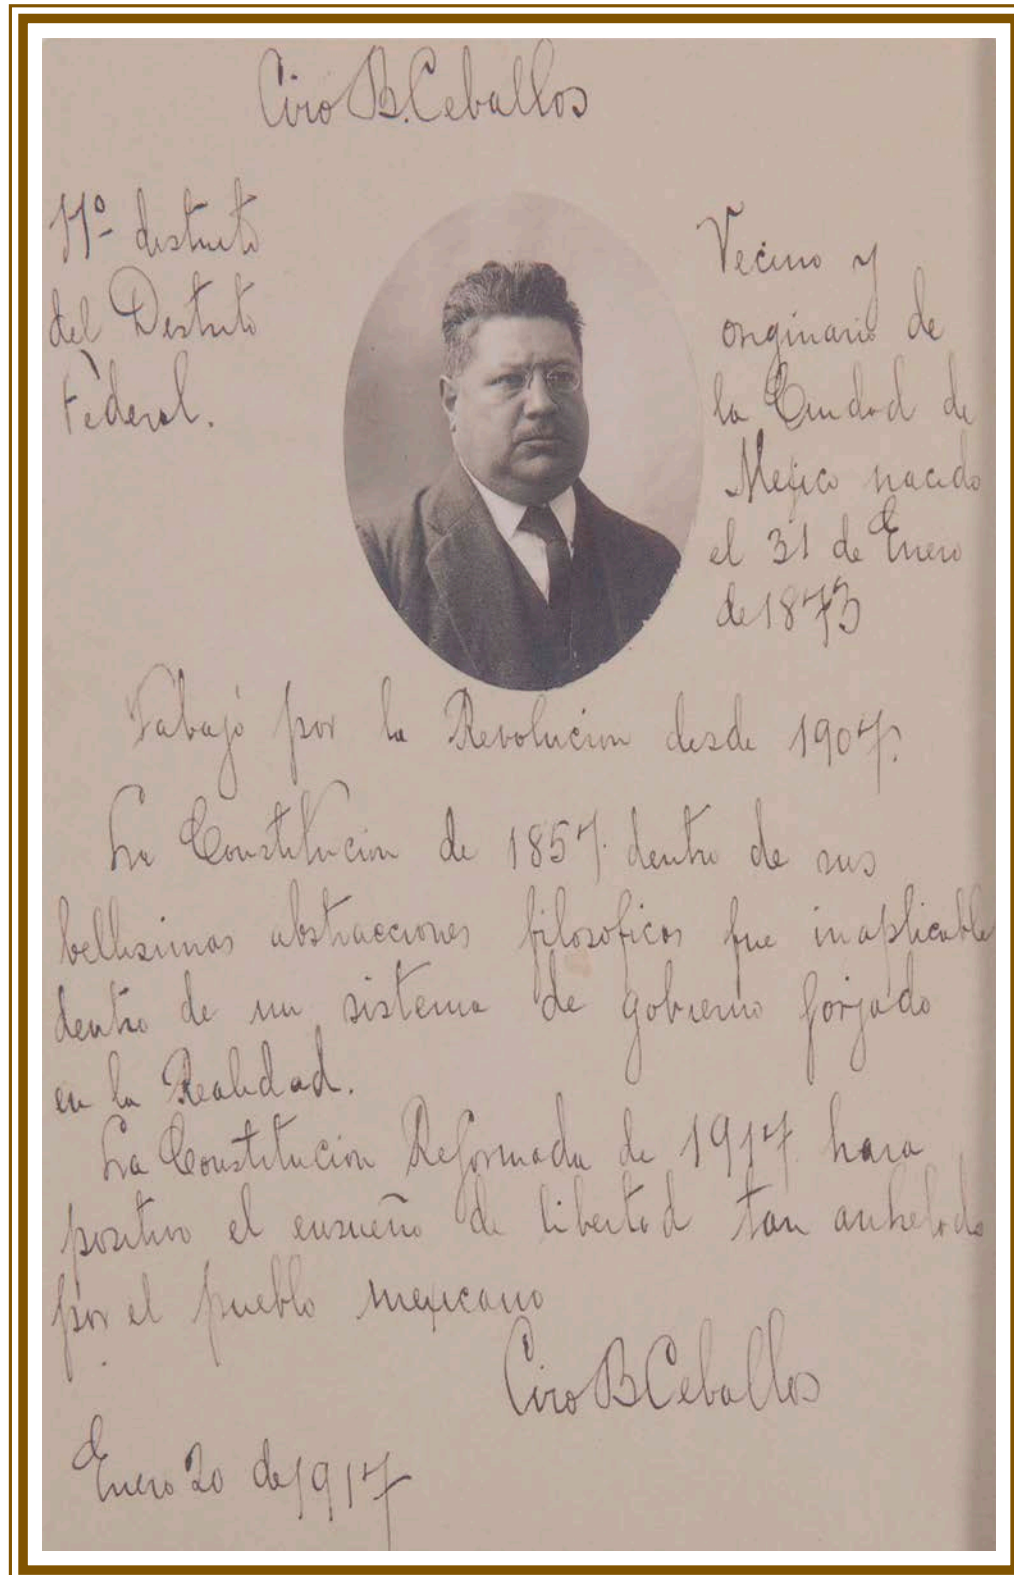 Ciro B. Ceballos
11º distrito
del Distrito
Federal.
Vecino y
originario de
la Ciudad de
Mexico nacido
el 31 de Enero
de 1873
Trabajó por la Revolucion desde 1907.
La Constitucion de 1857 dentro de sus
bellisimas abstracciones filosoficas fue inaplicable
dentro de un sistema de gobierno forjado
en la Realidad.
La Constitucion Reformada de 1917 hara
positivo el ensueño de libertad tan anhelado
por el pueblo mexicano
Ciro B Ceballos
Enero 20 de 1917